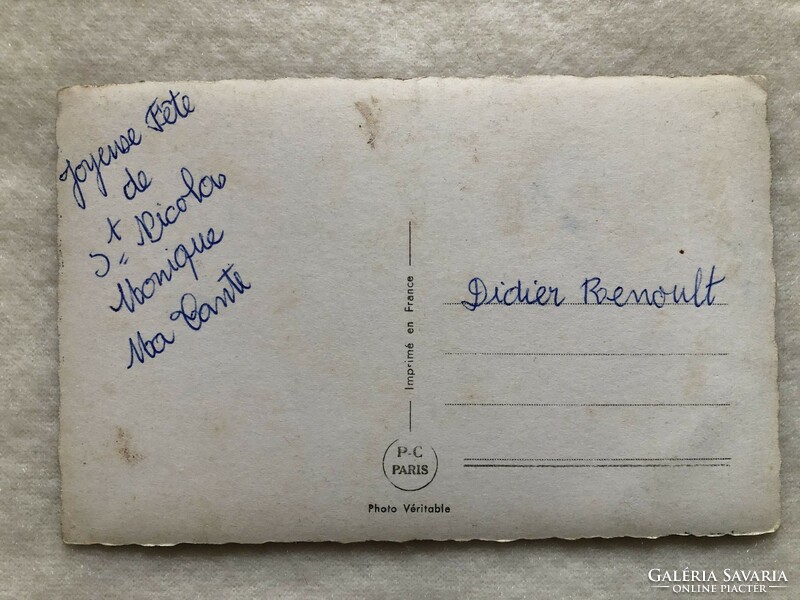 Joyeuse Fête
de
St Nicolas
Monique
Ma Tante
Didier Renoult
Imprimé en France
P-C
PARIS
Photo Véritable
GALÉRIA SAVARIA
ONLINE PIACTÉR